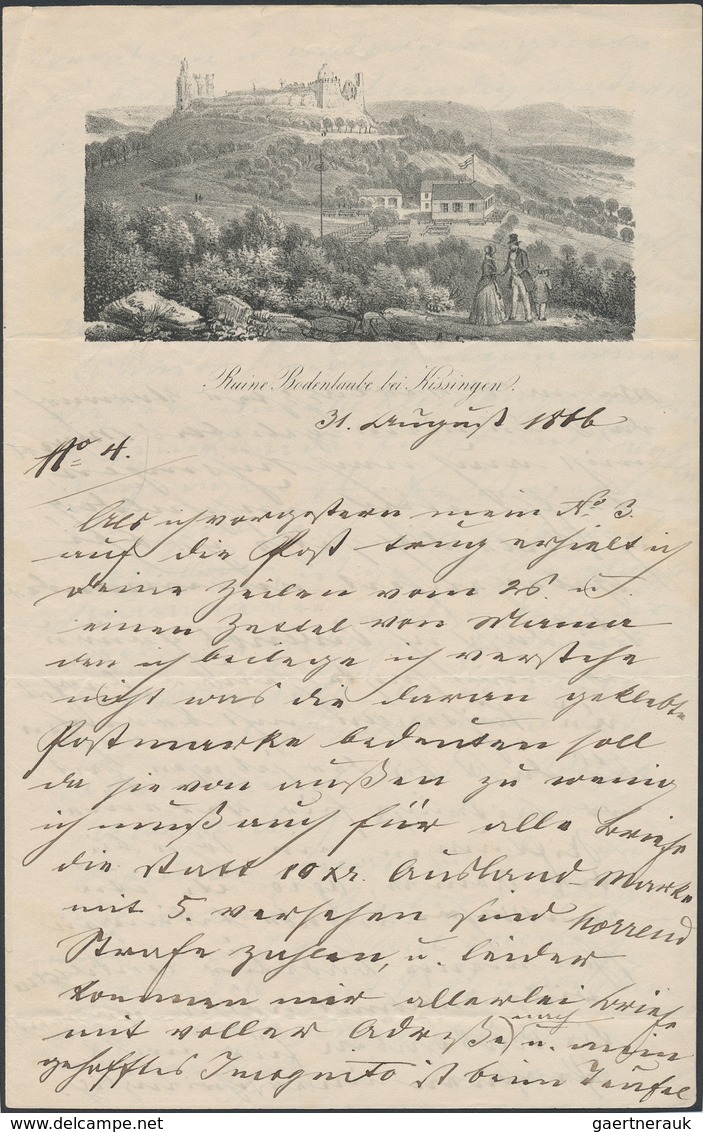 Ruine Bodenlaube bei Kissingen.
31. August 1866
No 4.
Als ich vorgestern mein No 3.
auf die Post trug erhielt ich
Deine Zeilen vom 26. u.
einen Zettel von Mama
den ich beilege ich verstehe
nicht was die daran geklebte
Postmarke bedeuten soll
da sie von außen zu wenig
ich muß auch für alle Briefe
die statt 10 xr. Ausland-Marke
mit 5. versehen sind horrend
Strafe zahlen, u. leider
kommen mir allerlei Briefe
mit voller Adreße nach u. mein
gehofftes Incognito ist beim Teufel
gaertnerauk